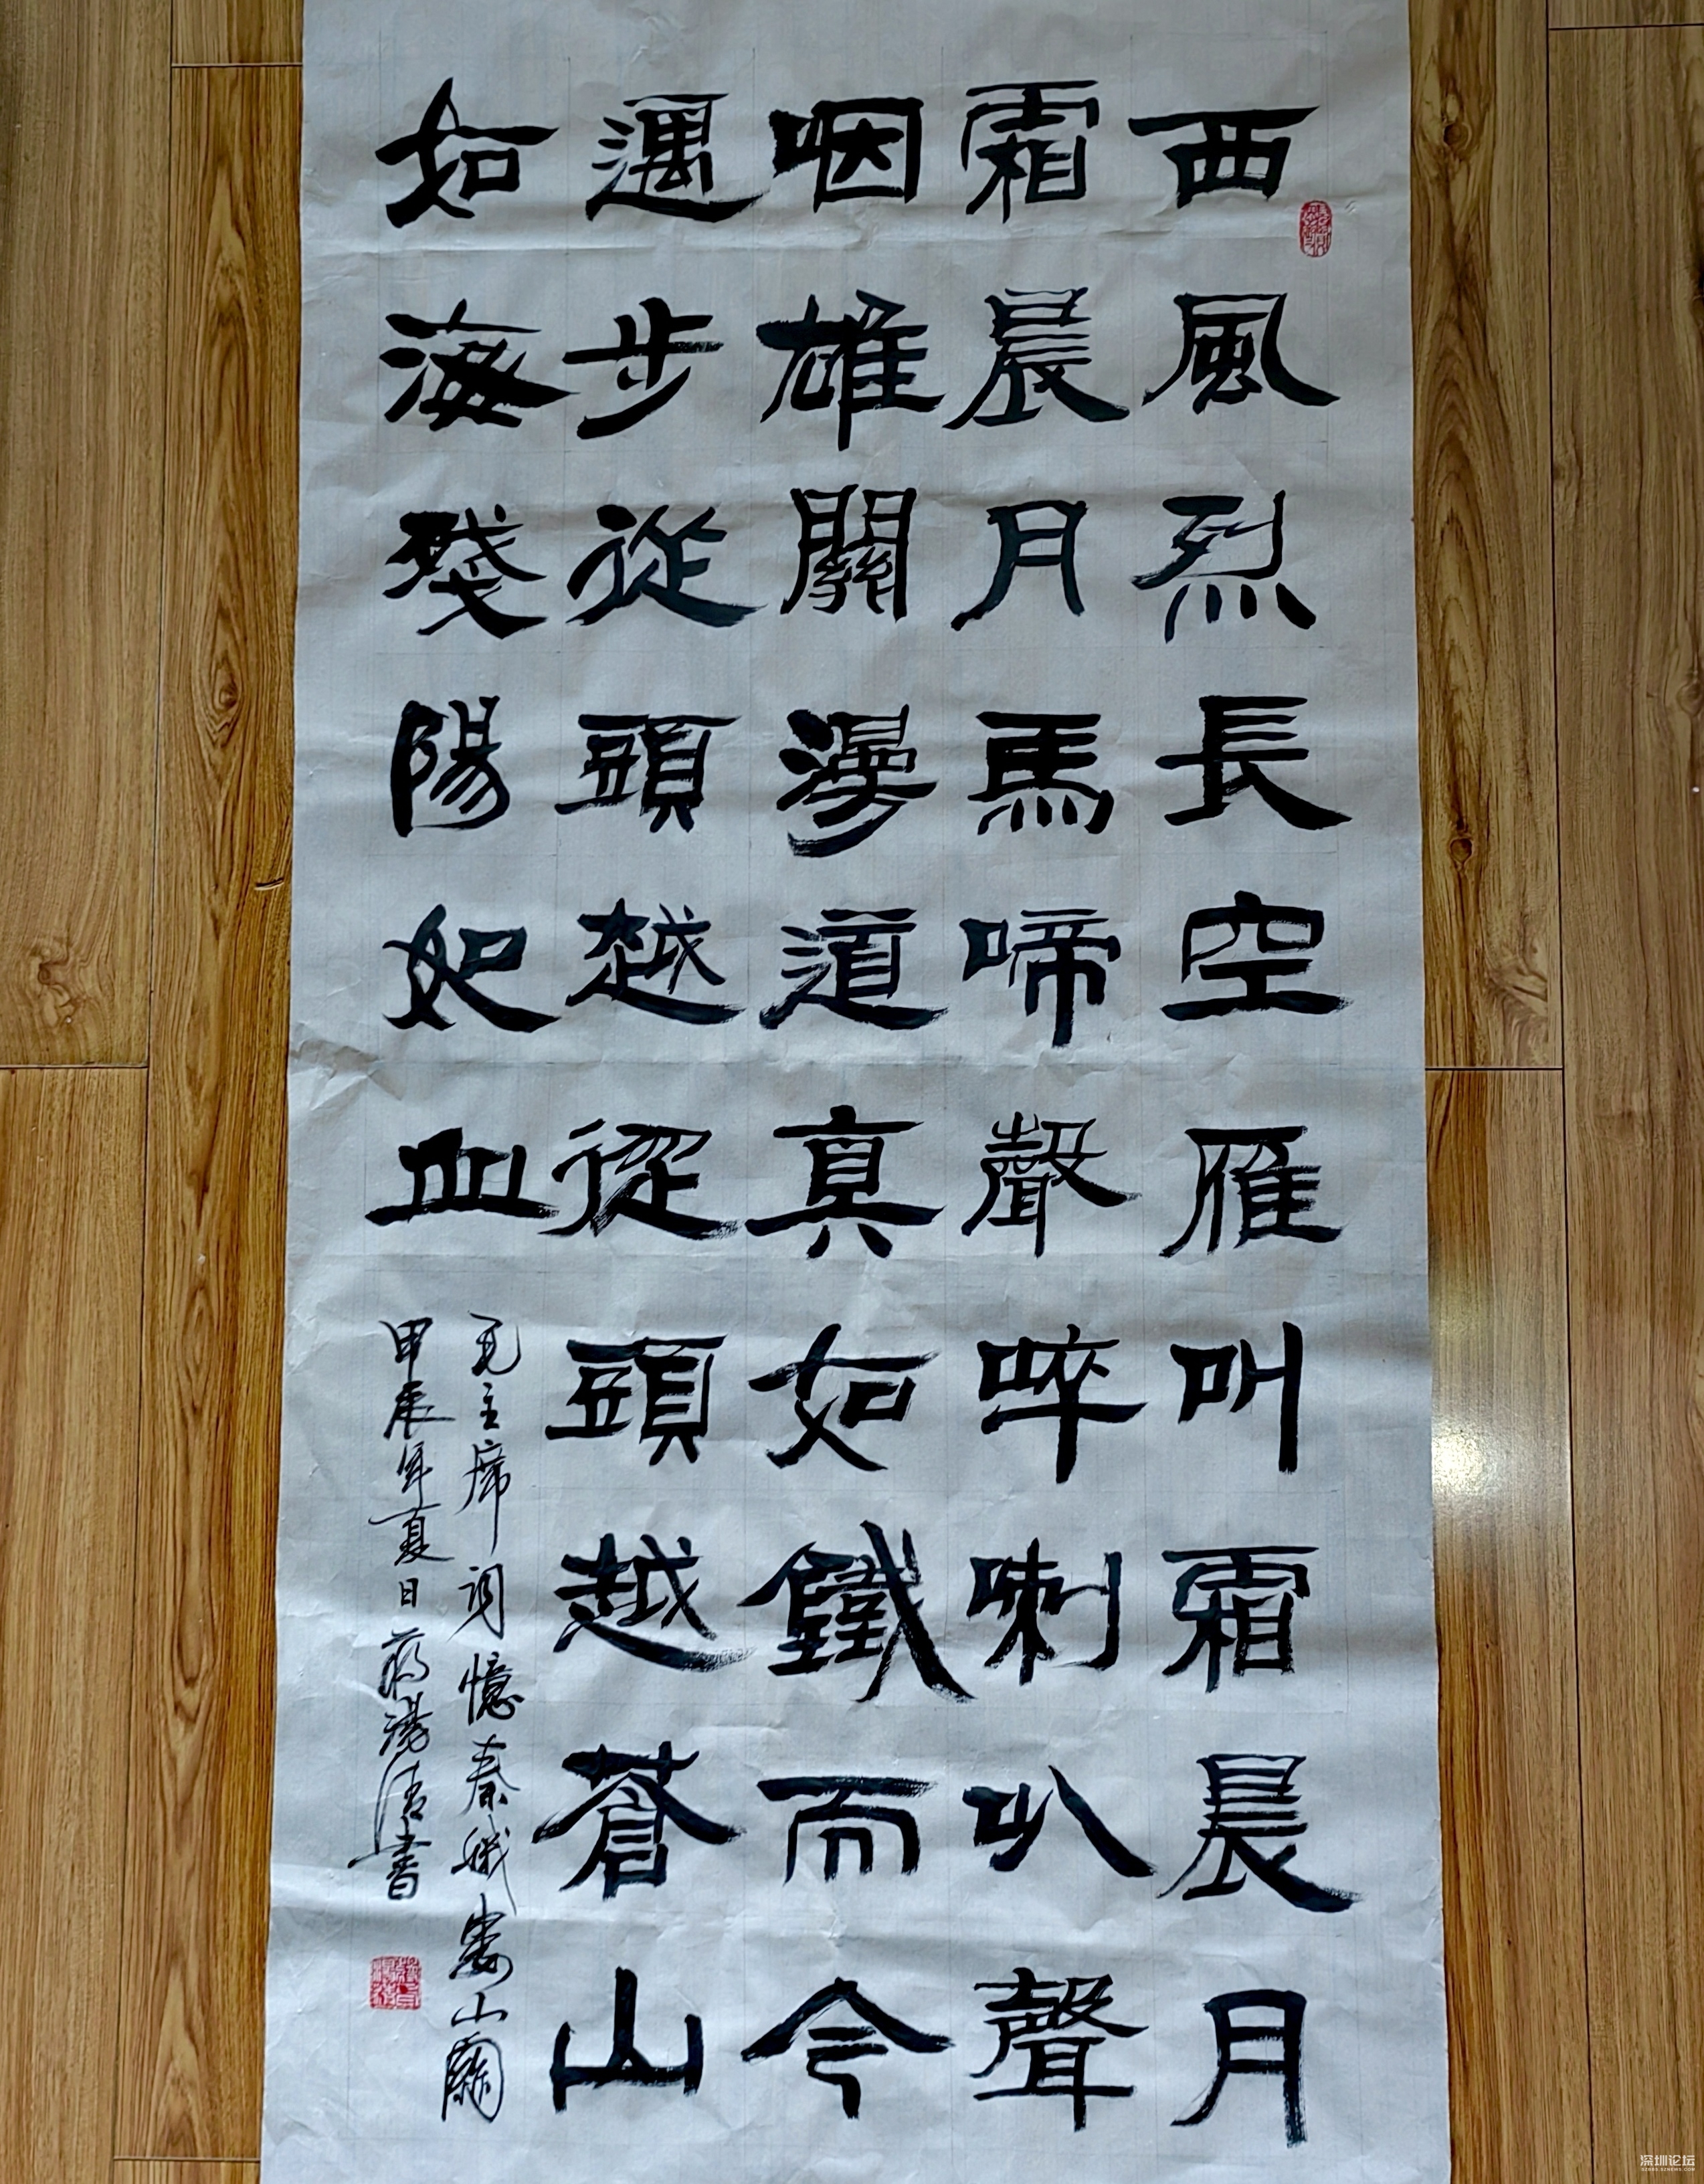 西風烈長空雁叫霜晨月
霜晨月馬啼聲啐喇叭聲
咽雄關漫道真如鐵而今
遇步從頭越從頭越蒼山
如海殘陽如血
毛主席词憶秦娥婁山關
甲辰年夏日書
深圳论坛